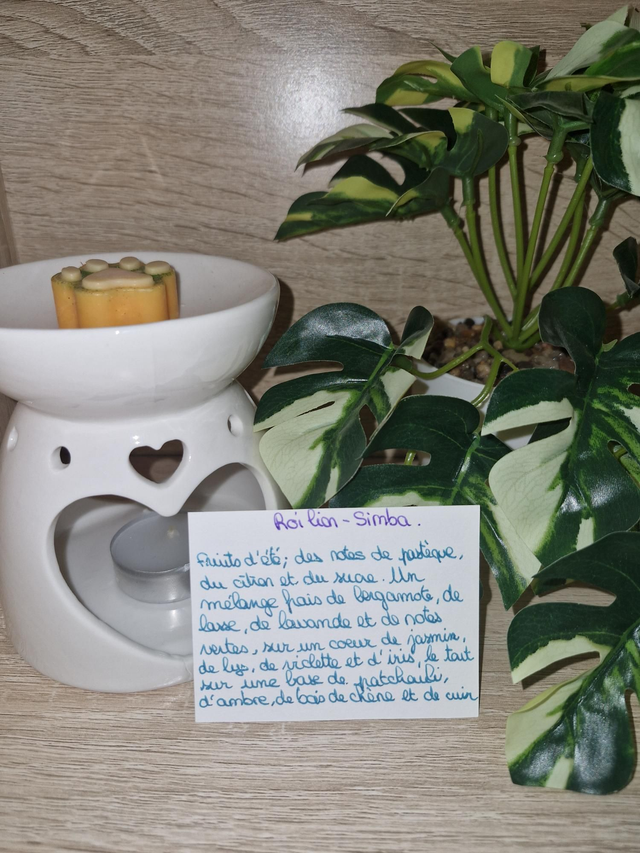 Roi lion - Simba.
Fruits d'été; des notes de pastèque,
du citron et du sucre. Un
mélange frais de bergamote, de
lasse, de lavande et de notes
vertes, sur un coeur de jasmin,
de lys, de violette et d'iris, le tout
sur une base de patchouli,
d'ambre, de bois de chêne et de cuir